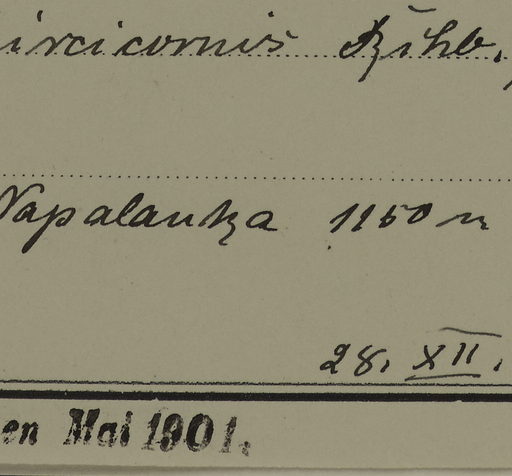 ircicornis
Napalantza 1150 m
28. XII.
en Mai 1901.